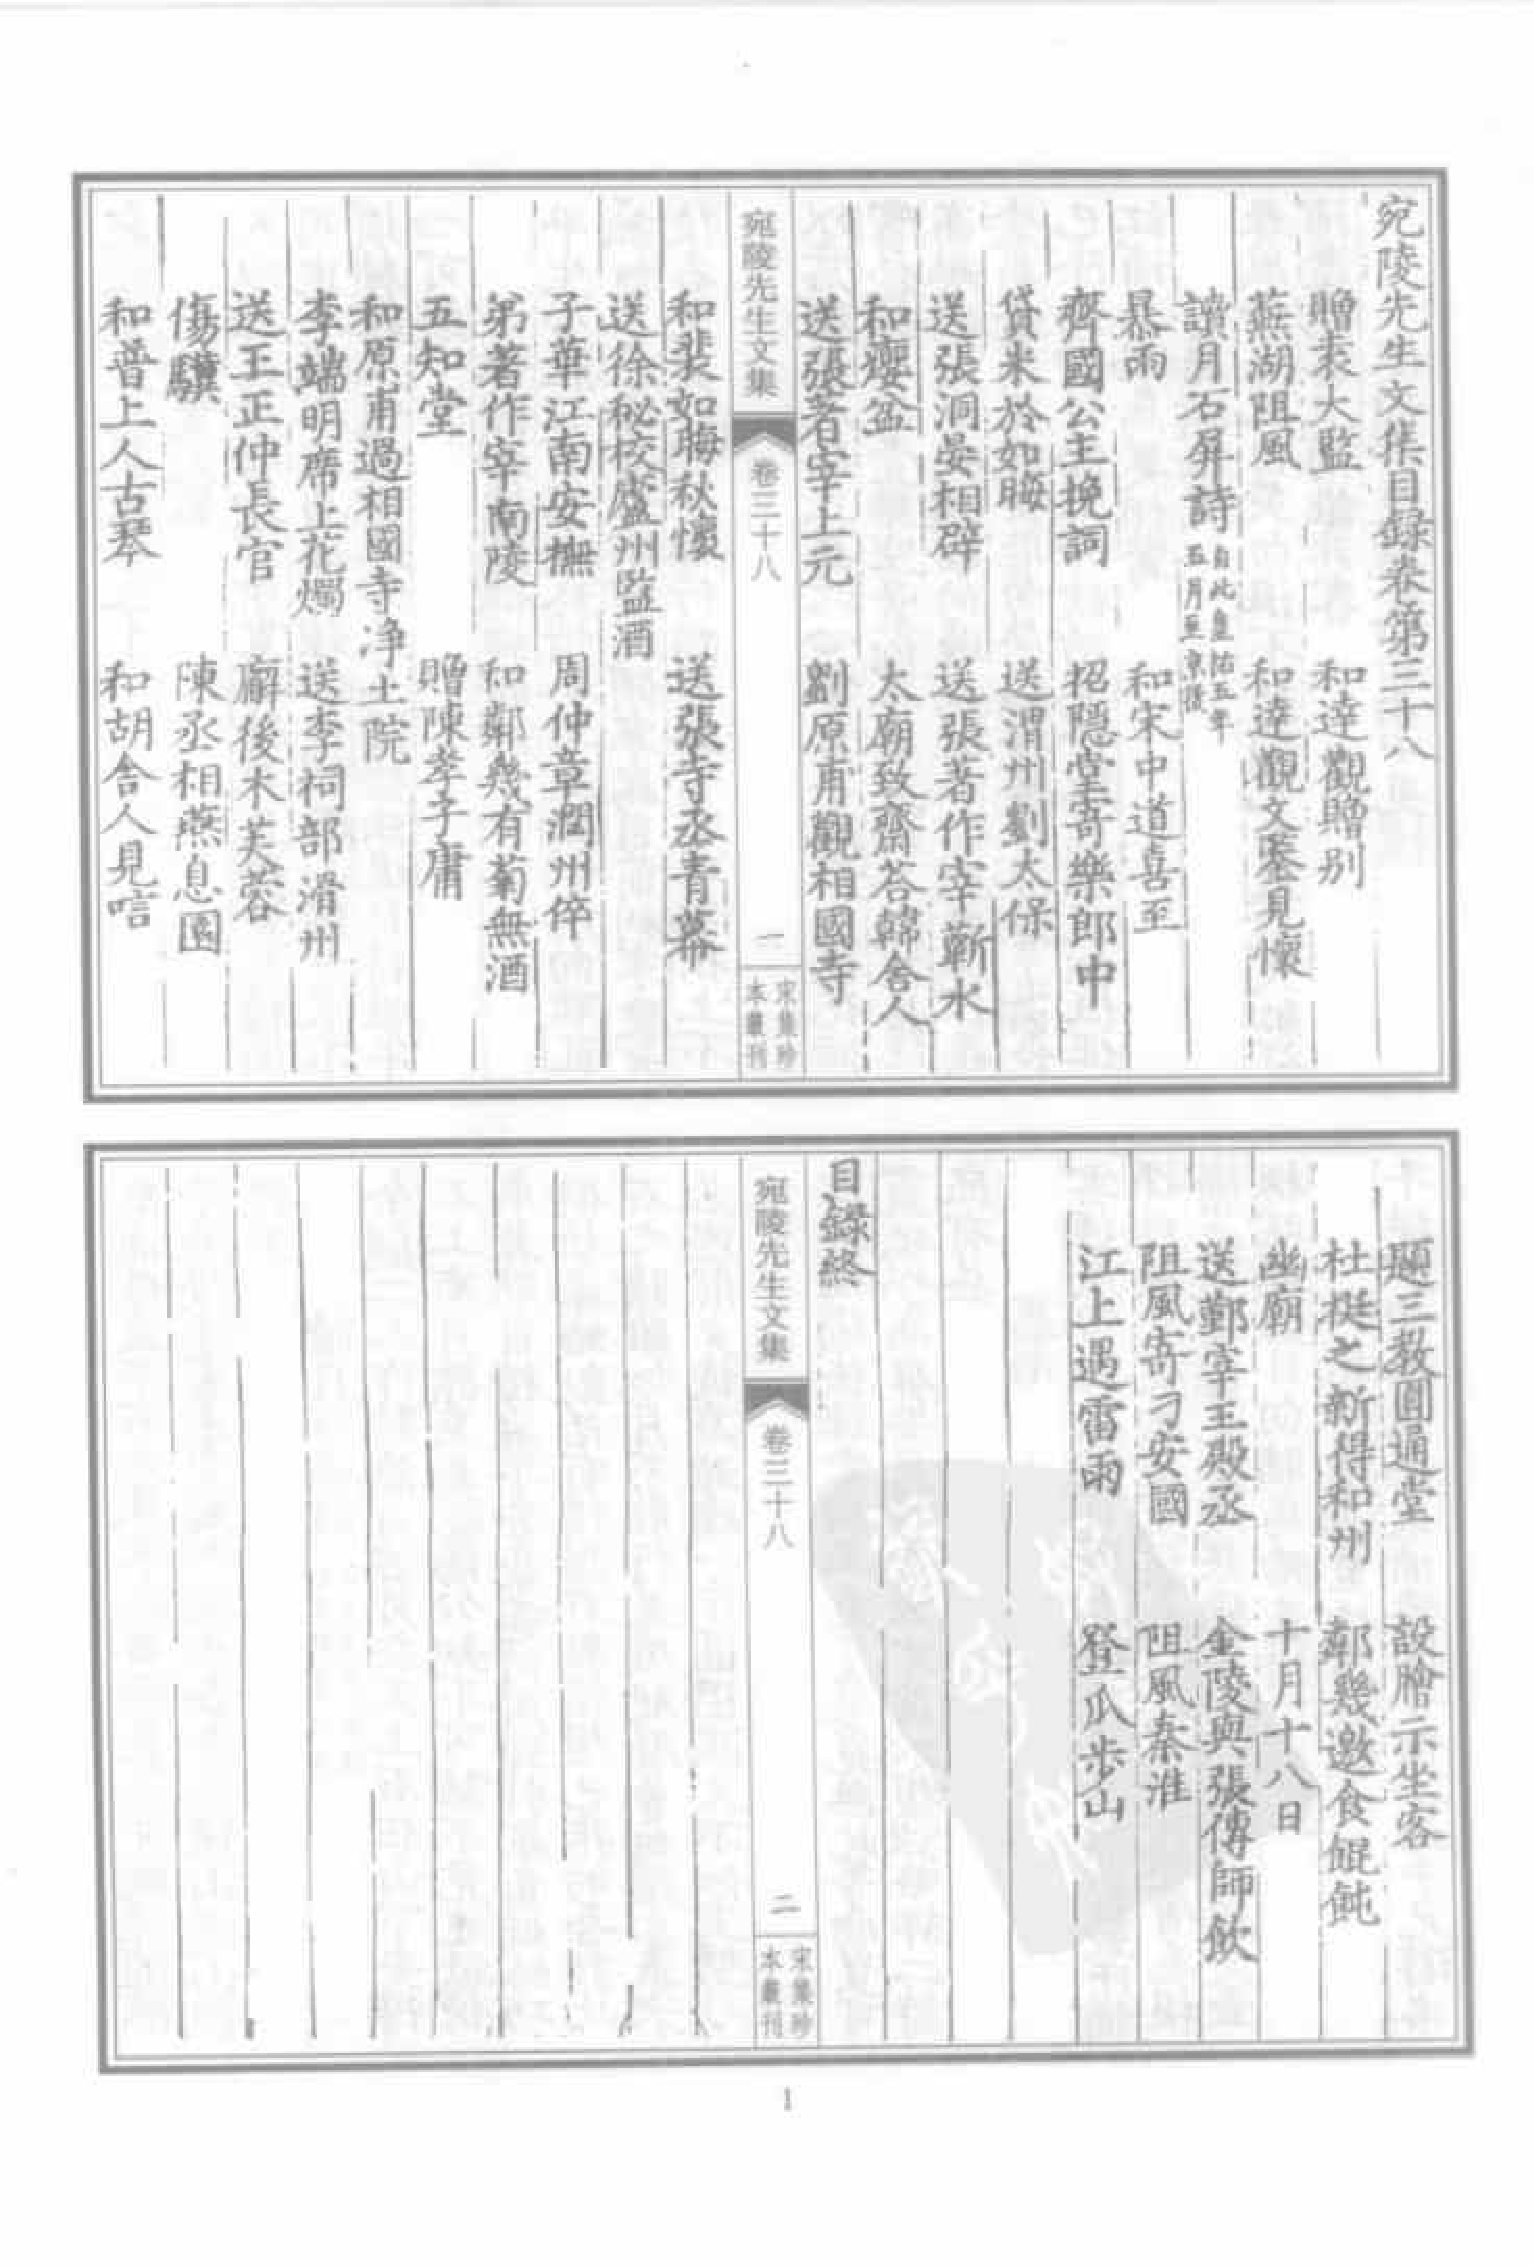 宛陵先生文集目録卷第三十八
贈裴大監　和達觀贈别
蕪湖阻風　和達觀文鑒見懷
讀月石屏詩　自此皇祐五年五月至京後
暴雨　和宋中道喜至
齊國公主挽詞　招隠堂寄樂郎中
貸米於如晦　送渭州劉太保
送張洞晏相辟　送張著作宰蘄水
和癭盆　太廟致齋荅韓舍人
送張著宰上元　劉原甫觀相國寺
宛陵先生文集　卷三十八　一　宋集珍本叢刊
和裴如晦秋懷　送張寺丞青幕
送徐秘校廬州監酒
子華江南安撫　周仲章潤州倅
弟著作宰南陵　和鄰幾有菊無酒
五知堂　贈陳孝子庸
和原甫過相國寺净土院
李端明席上花燭　送李祠部滑州
送王正仲長官　廨後木芙蓉
傷驥　陳丞相燕息園
和普上人古琴　和胡舍人見唁
題三教圓通堂　設膾示坐客
杜挺之新得和州　鄰幾邀食餛飩
幽廟　十月十八日
送鄞宰王殿丞　金陵與張傅師飲
阻風寄刁安國　阻風秦淮
江上遇雷雨　登瓜步山
目録終
宛陵先生文集　卷三十八　二　宋集珍本叢刊
1